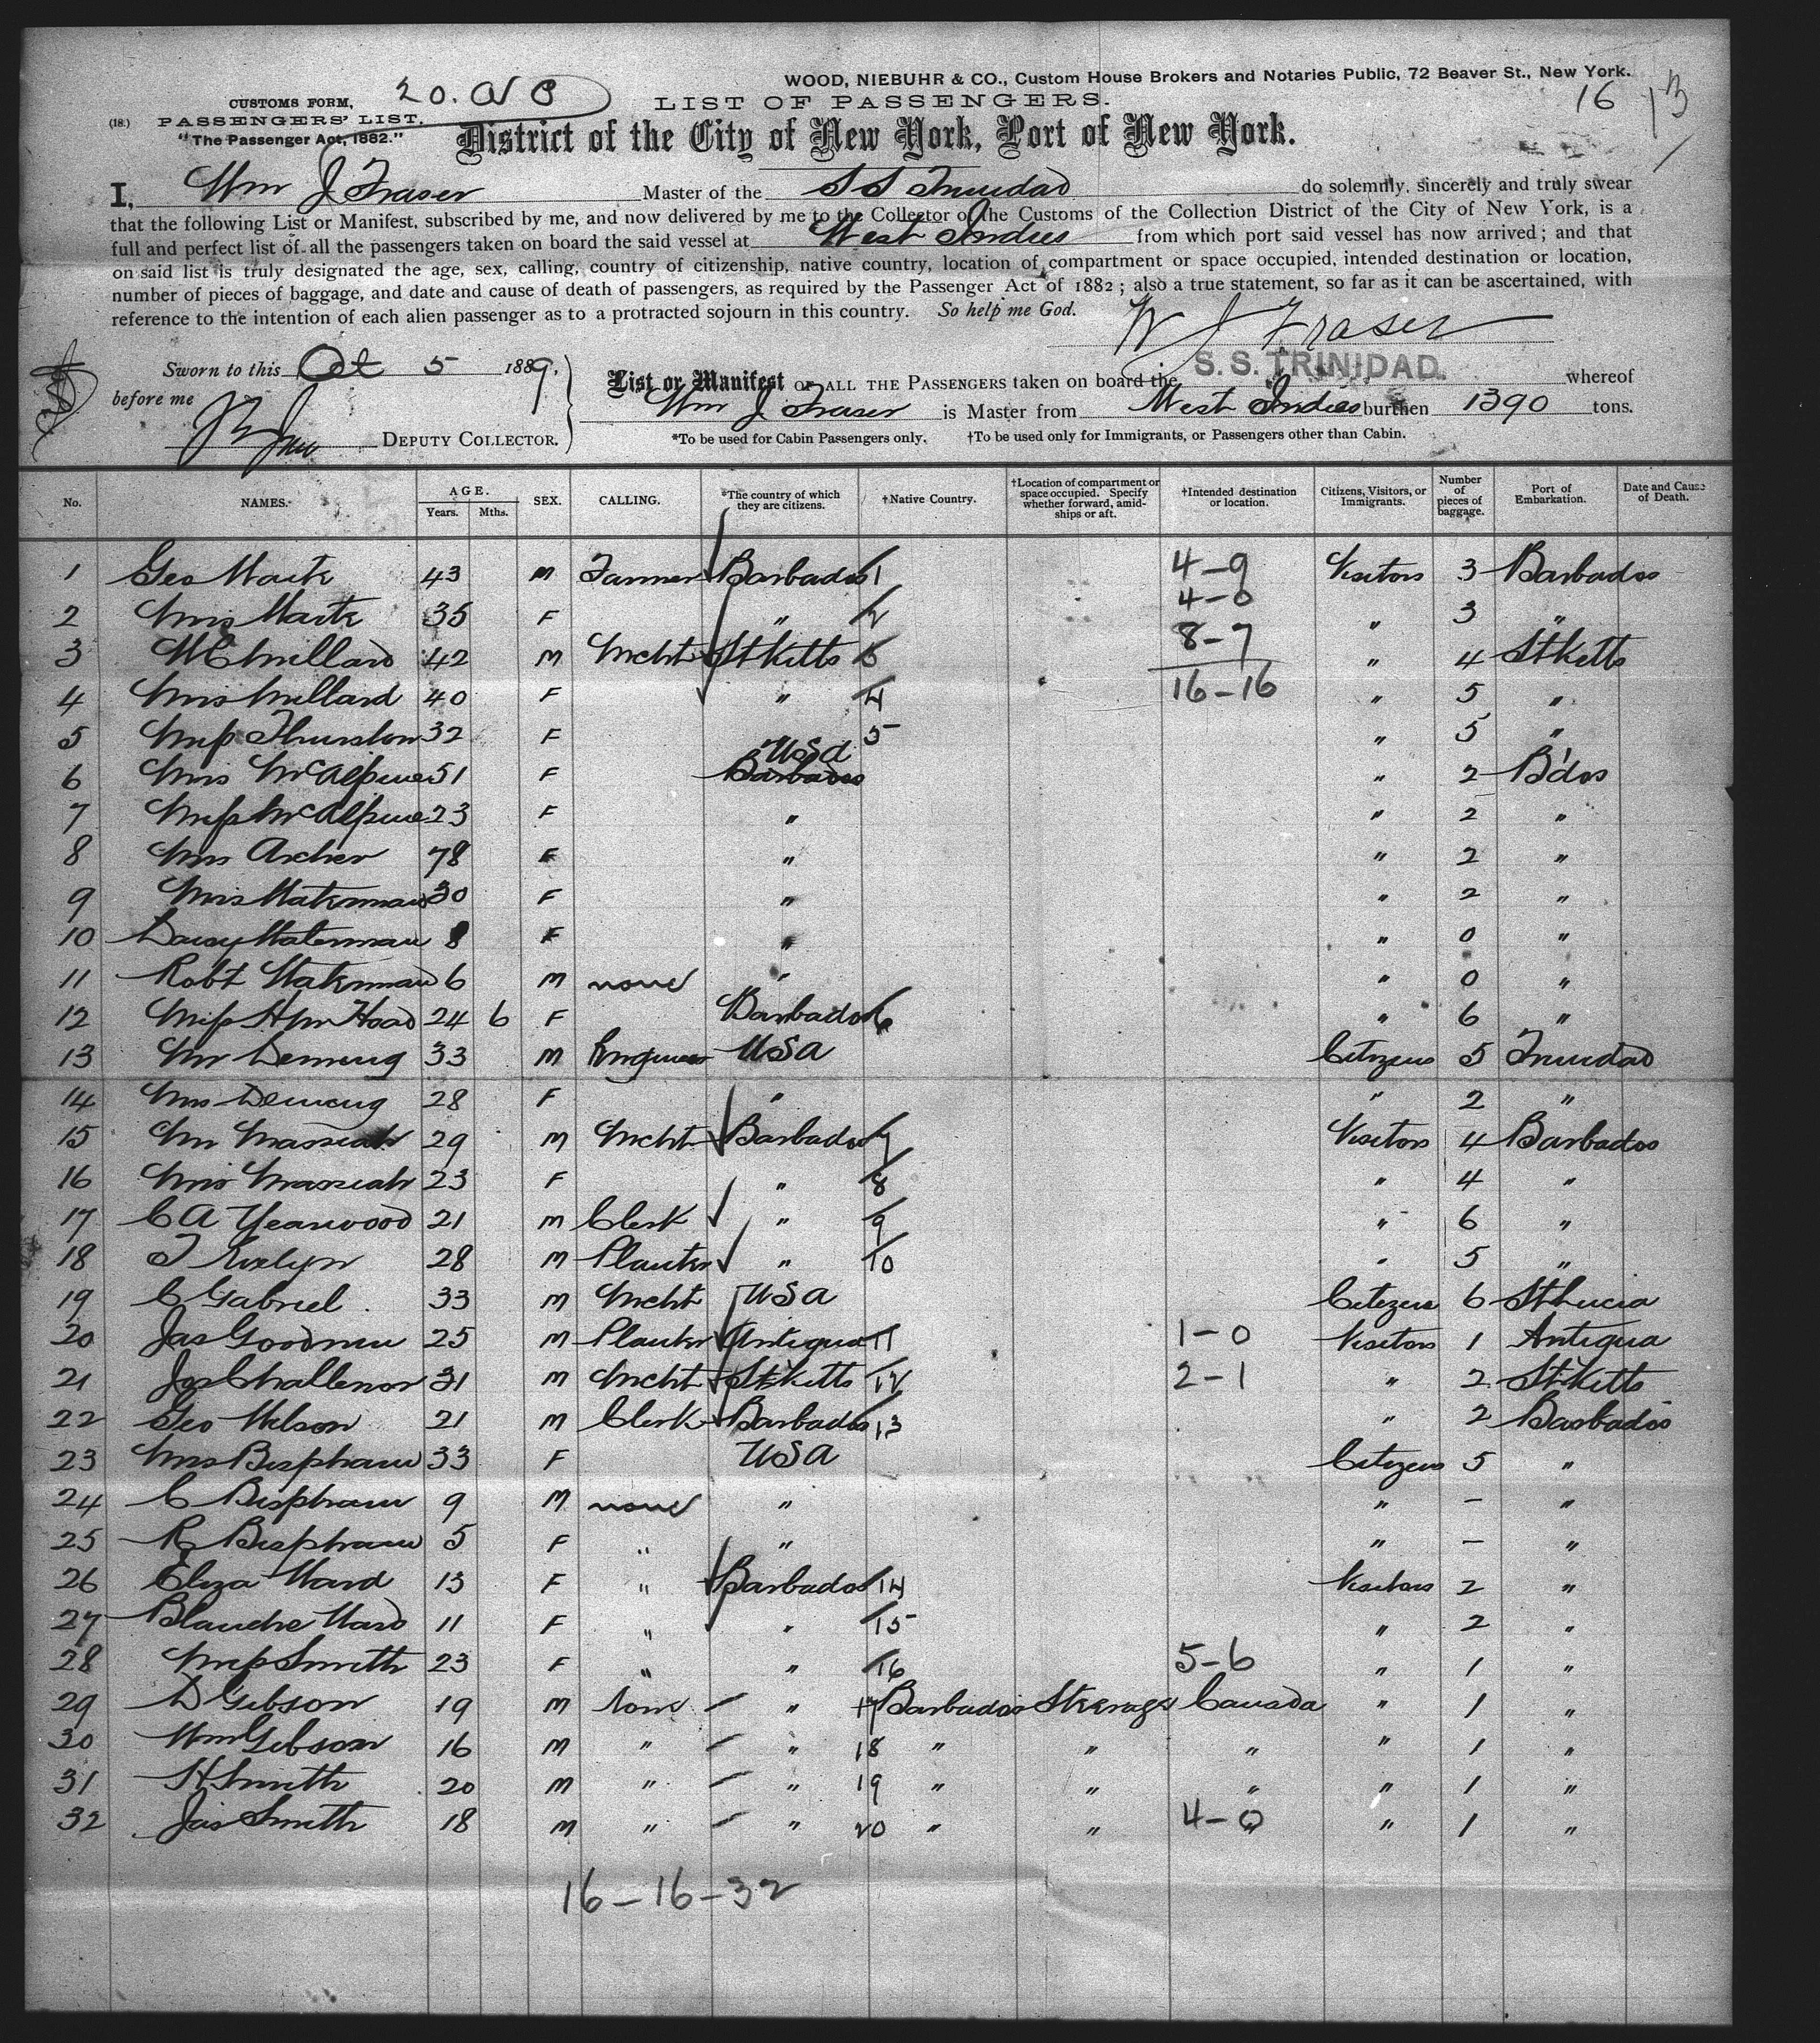 WOOD, NIEBUHR & CO., Custom House Brokers and Notaries Public, 72 Beaver St., New York.
CUSTOMS FORM, 20. LIST OF PASSENGERS. 16 13
(18.) PASSENGERS' LIST.
"The Passenger Act, 1882." District of the City of New York, Port of New York.
I, Wm J Fraser Master of the S S Trinidad do solemnly, sincerely and truly swear
that the following List or Manifest, subscribed by me, and now delivered by me to the Collector of the Customs of the Collection District of the City of New York, is a
full and perfect list of all the passengers taken on board the said vessel at West Indies from which port said vessel has now arrived; and that
on said list is truly designated the age, sex, calling, country of citizenship, native country, location of compartment or space occupied, intended destination or location,
number of pieces of baggage, and date and cause of death of passengers, as required by the Passenger Act of 1882; also a true statement, so far as it can be ascertained, with
reference to the intention of each alien passenger as to a protracted sojourn in this country. So help me God.
W J Fraser
Sworn to this Oct 5 1889, List or Manifest OF ALL THE PASSENGERS taken on board the S. S. TRINIDAD. whereof
before me Wm J Fraser is Master from West Indies burthen 1390 tons.
DEPUTY COLLECTOR. *To be used for Cabin Passengers only. †To be used only for Immigrants, or Passengers other than Cabin.
No. NAMES. AGE. Years. Mths. SEX. CALLING. *The country of which they are citizens. †Native Country. †Location of compartment or space occupied. Specify whether forward, amidships or aft. †Intended destination or location. Citizens, Visitors, or Immigrants. Number of pieces of baggage. Port of Embarkation. Date and Cause of Death.
1 Geo 43 M Farmer Barbados 1 4-9 Visitors 3 Barbados
2 Mrs 35 F " 2 4-0 " 3 "
3 Millard 42 M Mcht St Kitts 3 8-7 " 4 St Kitts
4 Mrs Millard 40 F " 4 16-16 " 5 "
5 Miss Thurston 32 F " 5 " 5 "
6 Mrs McAlpine 51 F USA Barbados " 2 B'dos
7 Miss McAlpine 23 F " " 2 "
8 Mrs Archer 78 F " " 2 "
9 Mrs Waterman 30 F " " 2 "
10 Daisy Waterman 8 F " " 0 "
11 Robt Waterman 6 M none " " 0 "
12 Miss H M Hoad 24 6 F Barbados 6 " 6 "
13 Mr Deming 33 M Engineer USA Citizens 5 Trinidad
14 Mrs Deming 28 F " " 2 "
15 Mr Massiah 29 M Mcht Barbados 7 Visitors 4 Barbados
16 Mrs Massiah 23 F " 8 " 4 "
17 C A Yearwood 21 M Clerk " 9 " 6 "
18 T Evelyn 28 M Planter " 10 " 5 "
19 C Gabriel 33 M Mcht USA Citizens 6 St Lucia
20 Jas 25 M Planter Antigua 11 1-0 Visitors 1 Antigua
21 Jos Challenor 31 M Mcht St Kitts 12 2-1 " 2 St Kitts
22 Geo Wilson 21 M Clerk Barbados 13 " 2 Barbados
23 Mrs Bispham 33 F USA Citizens 5 "
24 C Bispham 9 M none " " - "
25 R Bispham 5 F " " " - "
26 Eliza Ward 13 F " Barbados 14 Visitors 2 "
27 Blanche Ward 11 F " " 15 " 2 "
28 Miss Smith 23 F " " 16 5-6 " 1 "
29 D Gibson 19 M none " 17 Barbados Steerage Canada " 1 "
30 Wm Gibson 16 M " " 18 " " " " 1 "
31 H Smith 20 M " " 19 " " " " 1 "
32 Jas Smith 18 M " " 20 " " 4-0 " " 1 "
16-16-32